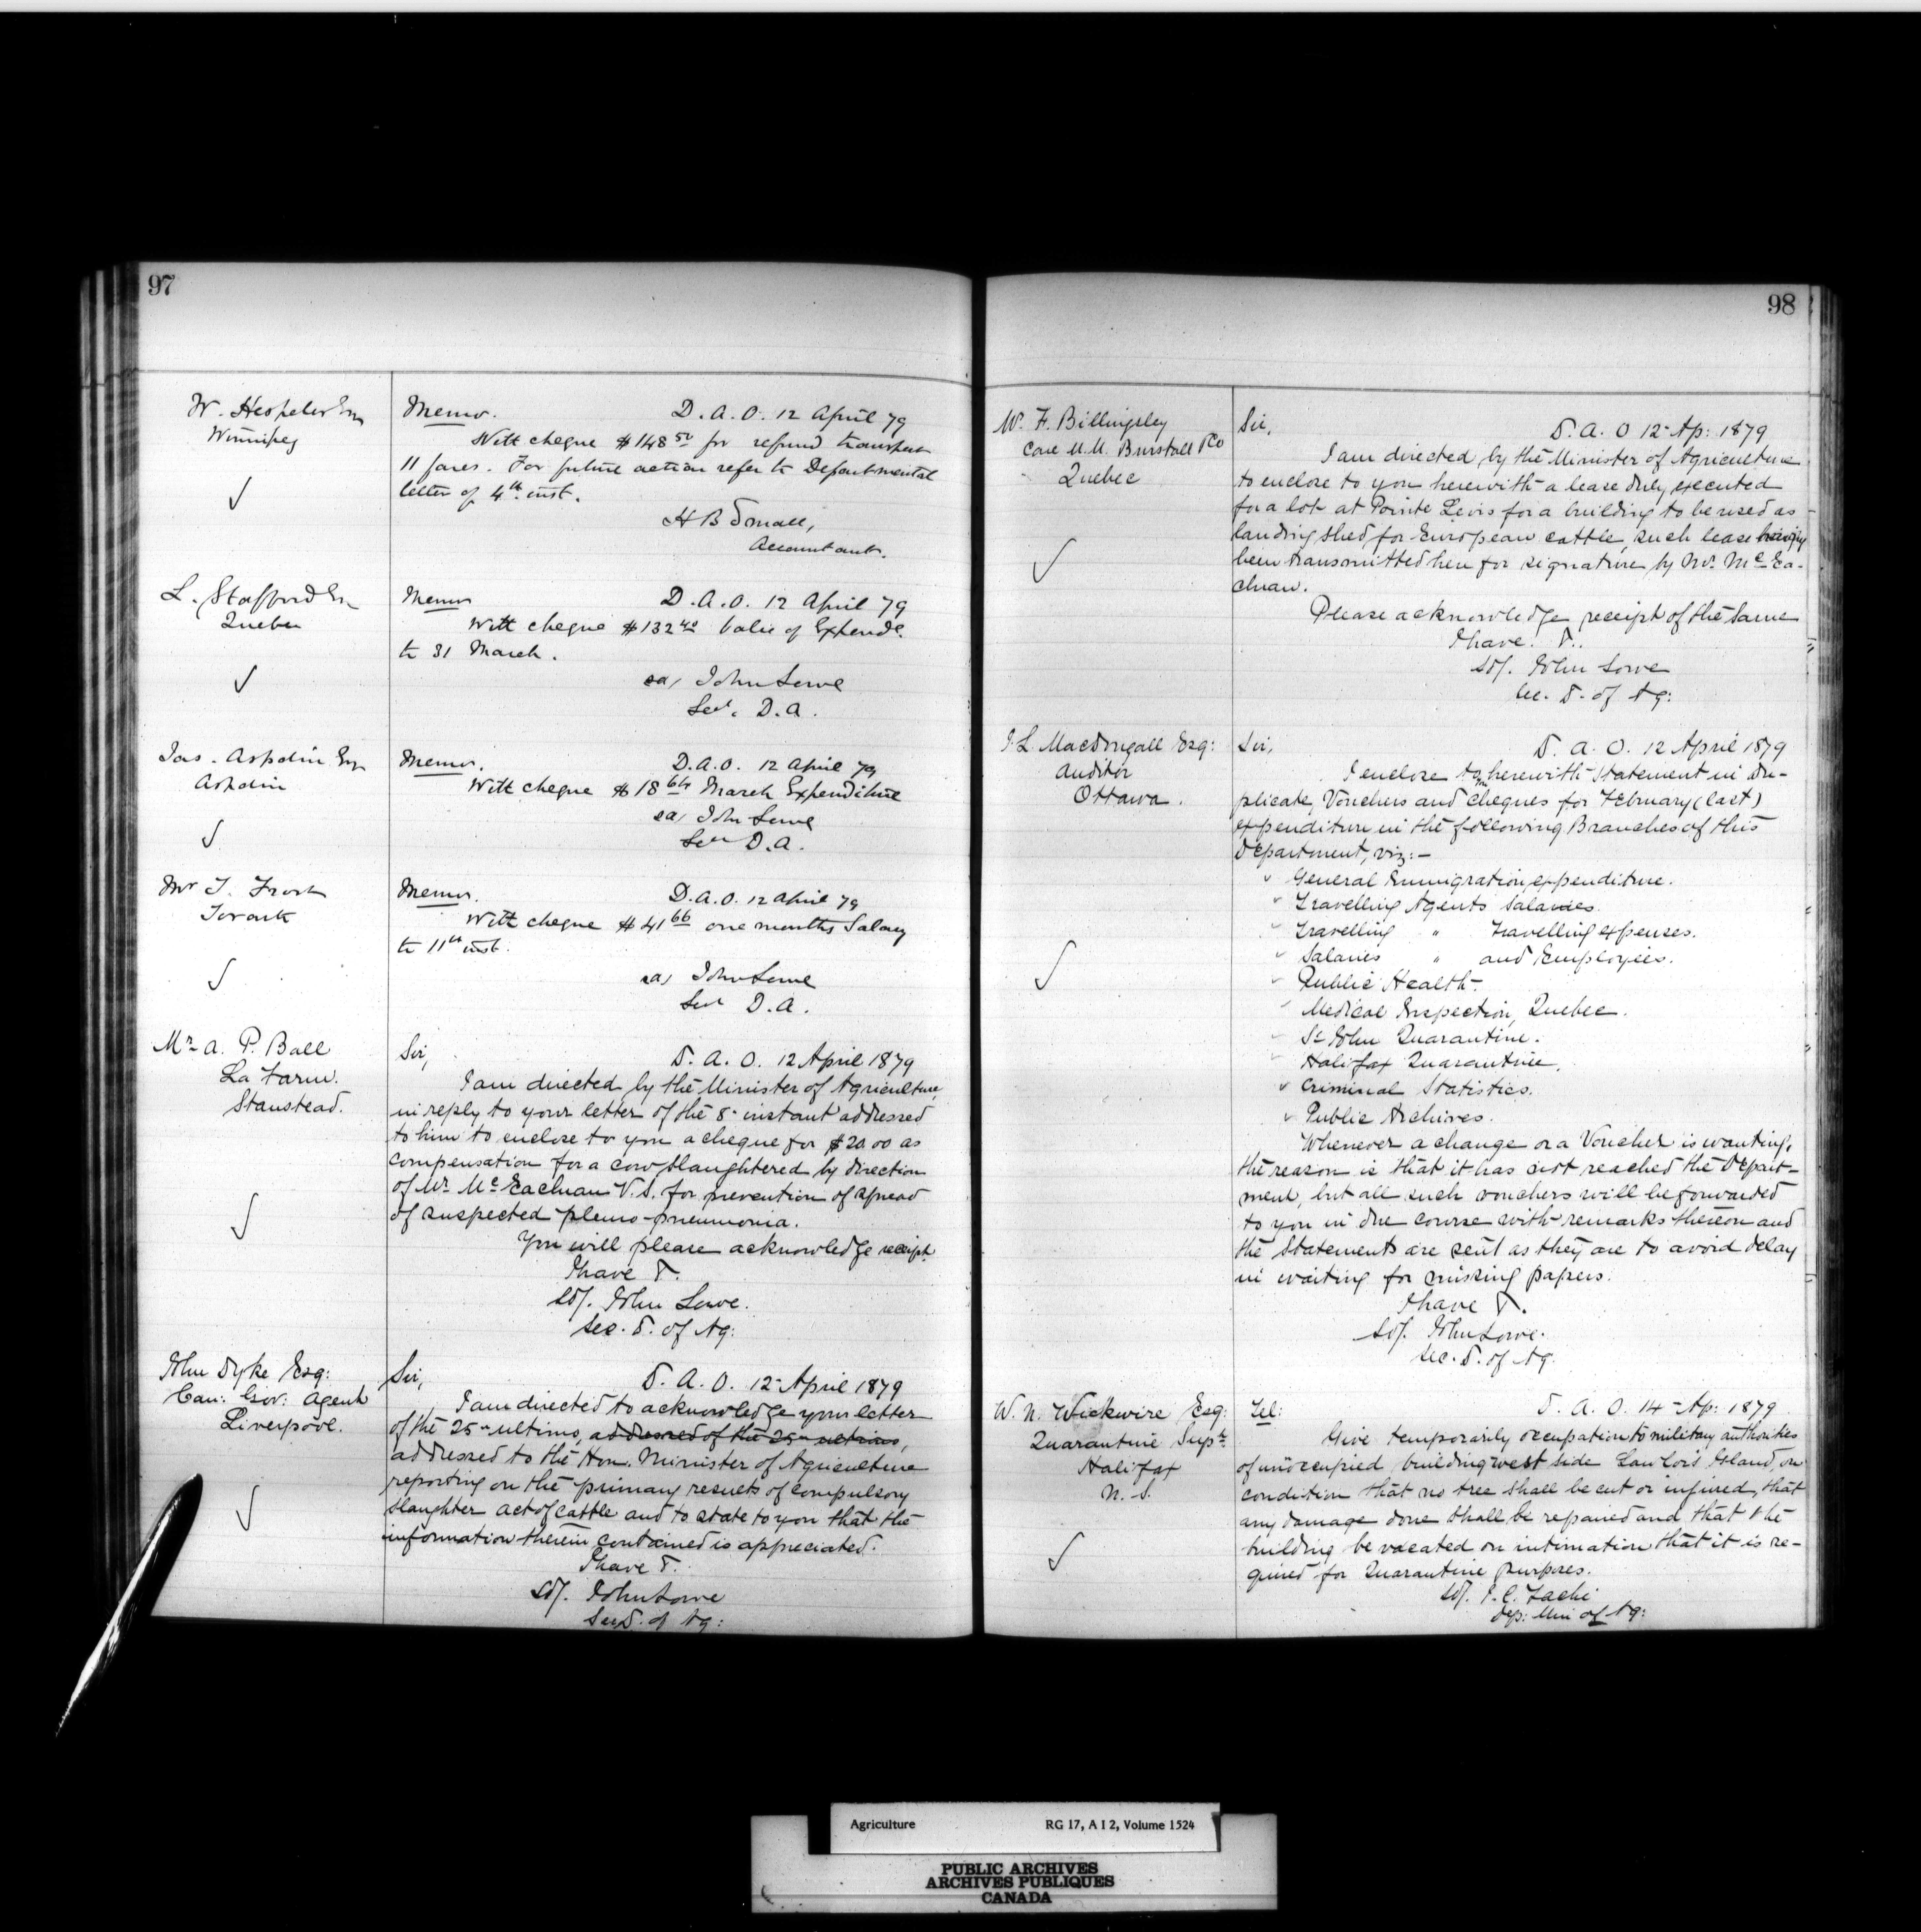 97
W. Hespeler Esq
Winnipeg
Memo. D. A. O. 12 April 79
With cheque $148 50 for refund transport
11 fares. For future action refer to Departmental
letter of 4th inst.
H B Small,
Accountant.
L. Stafford Esq
Quebec
Memo D. A. O. 12 April 79
With cheque $132 40 balce of Expende.
to 31 March.
sd/ John Lowe
Secy. D. A.
Jas. Aspdin Esq
Aspdin
Memo. D. A. O. 12 April 79
With cheque $18 64 March Expenditure
sd/ John Lowe
Secy D. A.
Mr T. Frost
Toronto
Memo. D. A. O. 12 April 79
With cheque $41 66 one months Salary
to 11th inst.
sd/ John Lowe
Secy D. A.
Mr A. P. Ball
La Farm.
Stanstead.
Sir, D. A. O. 12 April 1879
I am directed by the Minister of Agriculture,
in reply to your letter of the 8- instant addressed
to him to enclose to you a cheque for $20.00 as
compensation for a cow slaughtered by direction
of Mr. McEachran V. S. for prevention of spread
of suspected pleuro-pneumonia.
You will please acknowledge receipt.
I have &.
sd/. John Lowe.
Sec. D. of Ag:
John Dyke Esq:
Can: Gov: Agent
Liverpool.
Sir, D. A. O. 12- April 1879
I am directed to acknowledge your letter
of the 25- ultimo, addressed of the 25- ultimo,
addressed to the Hon. Minister of Agriculture
reporting on the primary results of compulsory
slaughter act of cattle and to state to you that the
information therein contained is appreciated.
I have &.
sd/. John Lowe
Sec D. of Ag:
98
W. F. Billingsley
Care M.M. Burstall & Co
Quebec
Sir,
D. A. O 12- Ap: 1879
I am directed by the Minister of Agriculture
to enclose to you herewith a lease duly executed
for a lot at Pointe Levis for a building to be used as
landing shed for European cattle, such lease having
been transmitted here for signature by Mr. McEa-
chran.
Please acknowledge receipt of the same
I have. &..
sd/. John Lowe
Sec. D. of Ag:
J. L. Macdougall Esq:
Auditor
Ottawa.
Sir, D. A. O. 12 April 1879
I enclose to you herewith Statement in du-
plicate, Vouchers and cheques for February (last)
expenditure in the following Branches of this
Department, viz:-
General Immigration expenditure.
Travelling Agents Salaries.
Travelling " Travelling expenses.
Salaries " and Employées.
Public Health-
Medical Inspection, Quebec.
St John Quarantine.
Halifax Quarantine.
Criminal Statistics.
Public Archives.
Whenever a change or a Voucher is wanting,
the reason is that it has not reached the Depart-
ment, but all such vouchers will be forwarded
to you in due course with remarks thereon and
the Statements are sent as they are to avoid delay
in waiting for missing papers.
I have &.
sd/. John Lowe.
Sec. D. of Ag:
W. N. Wickwire Esq:
Quarantine Supt.
Halifax
N. S.
Tel: D. A. O. 14- Ap: 1879
Give temporarily occupation to military authorities
of unoccupied building west side Lawlors Island, on
condition that no tree shall be cut or injured, that
any damage done shall be repaired and that the
building be vacated on intimation that it is re-
quired for Quarantine purposes.
sd/. J. C. Taché
Dep: Min of Ag:
Agriculture RG 17, A I 2, Volume 1524
PUBLIC ARCHIVES
ARCHIVES PUBLIQUES
CANADA